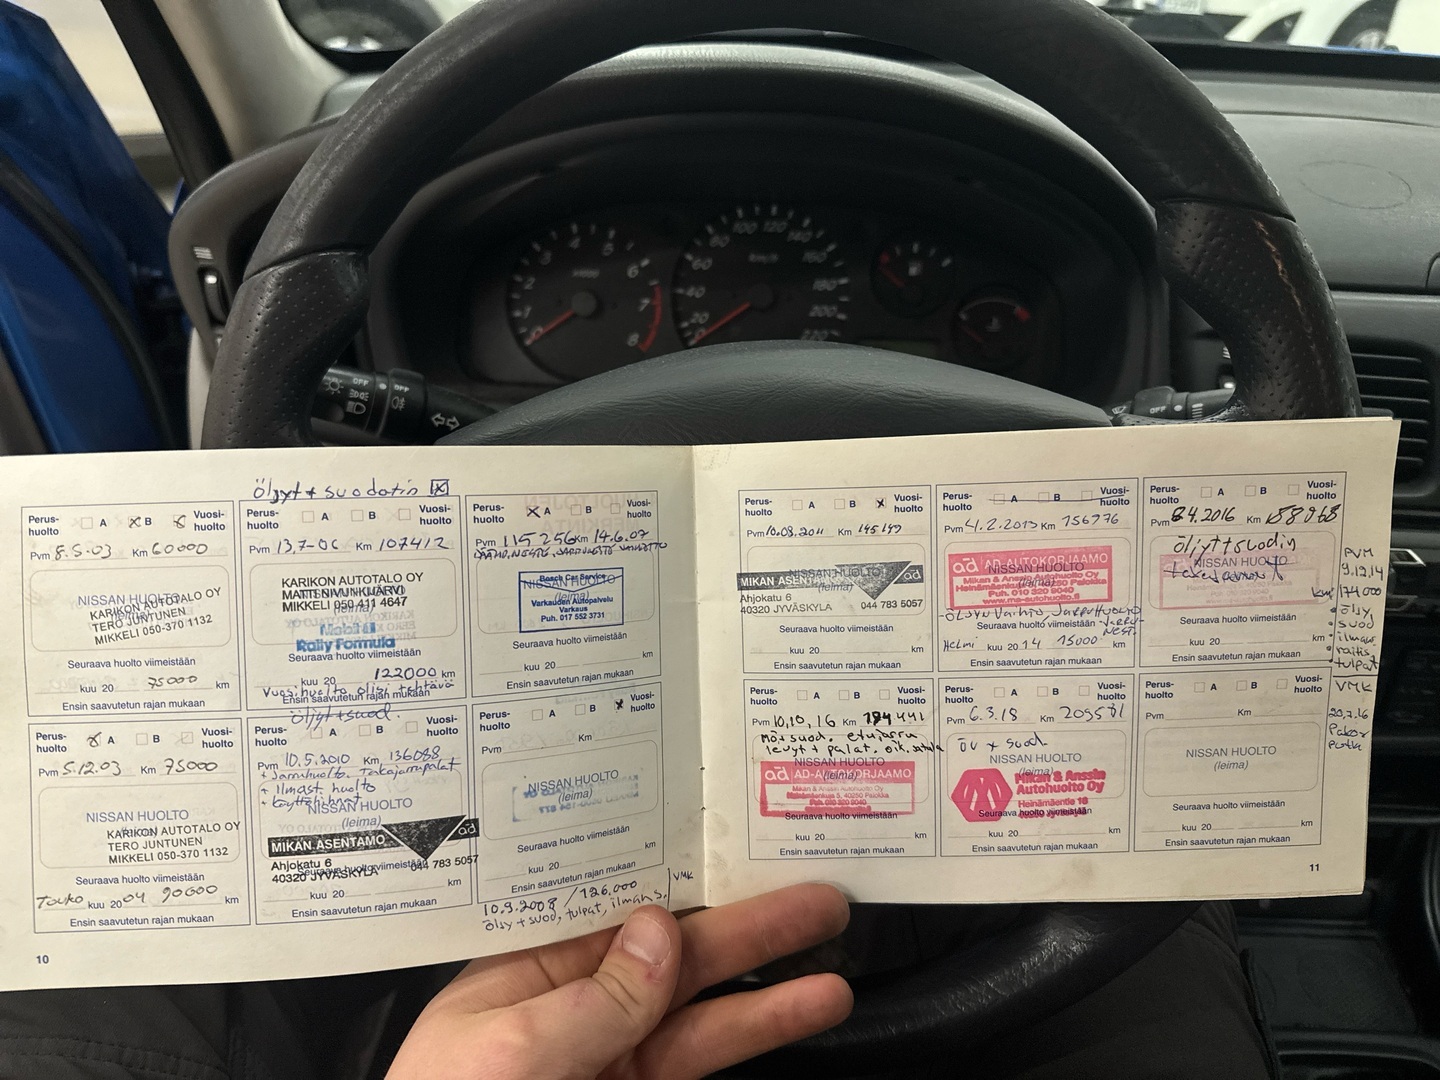 öljyt + suodatin
Perus-huolto A B Vuosi-huolto
Pvm 8.5.03 Km 60000
NISSAN HUOLTO
KARIKON AUTOTALO OY
TERO JUNTUNEN
MIKKELI 050-370 1132
Seuraava huolto viimeistään
kuu 20 75000 km
Ensin saavutetun rajan mukaan
Perus-huolto A B Vuosi-huolto
Pvm 13.7-06 Km 107412
KARIKON AUTOTALO OY
MATTI NIVUNKIJÄRVI
MIKKELI 050 411 4647
Mobil 1
Rally Formula
Seuraava huolto viimeistään
kuu 20 122000 km
Vuosihuolto olisi tehtävä
Ensin saavutetun rajan mukaan
Perus-huolto A B Vuosi-huolto
Pvm 115 256 Km 14.6.07
NISSAN HUOLTO
(leima)
Bosch Car Service
Varkauden Autopalvelu
Varkaus
Puh. 017 552 3731
Seuraava huolto viimeistään
kuu 20 km
Ensin saavutetun rajan mukaan
Perus-huolto A B Vuosi-huolto
Pvm 5.12.03 Km 75000
NISSAN HUOLTO
KARIKON AUTOTALO OY
TERO JUNTUNEN
MIKKELI 050-370 1132
Seuraava huolto viimeistään
Touko kuu 2004 90000 km
Ensin saavutetun rajan mukaan
öljyt + suod.
Perus-huolto A B Vuosi-huolto
Pvm 10.5.2010 Km 136088
+ Jarruhuolto. Takajarrupalat
+ ilmast. huolto
NISSAN HUOLTO
(leima)
MIKAN ASENTAMO ad
Ahjokatu 6
40320 JYVÄSKYLÄ 044 783 5057
Seuraava huolto viimeistään
kuu 20 km
Ensin saavutetun rajan mukaan
Perus-huolto A B Vuosi-huolto
Pvm Km
NISSAN HUOLTO
(leima)
Seuraava huolto viimeistään
kuu 20 km
Ensin saavutetun rajan mukaan
10.9.2008 / 126.000 VMK
öljy + suod, tulpat, ilman s.
10
Perus-huolto A B Vuosi-huolto
Pvm 10.08.2011 Km 145149
NISSAN HUOLTO
MIKAN ASENTAMO ad
Ahjokatu 6
40320 JYVÄSKYLÄ 044 783 5057
Seuraava huolto viimeistään
kuu 20 km
Ensin saavutetun rajan mukaan
Perus-huolto A B Vuosi-huolto
Pvm 4.2.2013 Km 156776
NISSAN HUOLTO
(leima)
ad AD-AUTOKORJAAMO
Mikan & Anssin Autohuolto Oy
Heinämäenkuja 5, 40250 Palokka
Puh. 010 320 9040
www.ma-autohuolto.fi
Öljyn vaihto Jarruhuolto
Jarrunest.
Seuraava huolto viimeistään
Helmi kuu 2014 15000 km
Ensin saavutetun rajan mukaan
Perus-huolto A B Vuosi-huolto
Pvm 8.4.2016 Km 188068
öljyt + suodin
NISSAN HUOLTO
(leima)
Seuraava huolto viimeistään
kuu 20 km
Ensin saavutetun rajan mukaan
PVM
9.12.14
km 174000
öljy,
suod
ilman.
raitis.
tulpat
VMK
20.7.16
Perus-huolto A B Vuosi-huolto
Pvm 10.10.16 Km 194441
Möj + suod. etujarru
levyt + palat. oik.
NISSAN HUOLTO
(leima)
ad AD-AUTOKORJAAMO
Seuraava huolto viimeistään
kuu 20 km
Ensin saavutetun rajan mukaan
Perus-huolto A B Vuosi-huolto
Pvm 6.3.18 Km 209501
öv + suod.
NISSAN HUOLTO
(leima)
Mikan & Anssin
Autohuolto Oy
Heinämäentie 18
Seuraava huolto viimeistään
kuu 20 km
Ensin saavutetun rajan mukaan
Perus-huolto A B Vuosi-huolto
Pvm Km
NISSAN HUOLTO
(leima)
Seuraava huolto viimeistään
kuu 20 km
Ensin saavutetun rajan mukaan
11
0 1 2 3 4 5 6 7 8
20 40 60 80 100 120 140 160 180 200 220
km/h
OFF
OFF
OFF